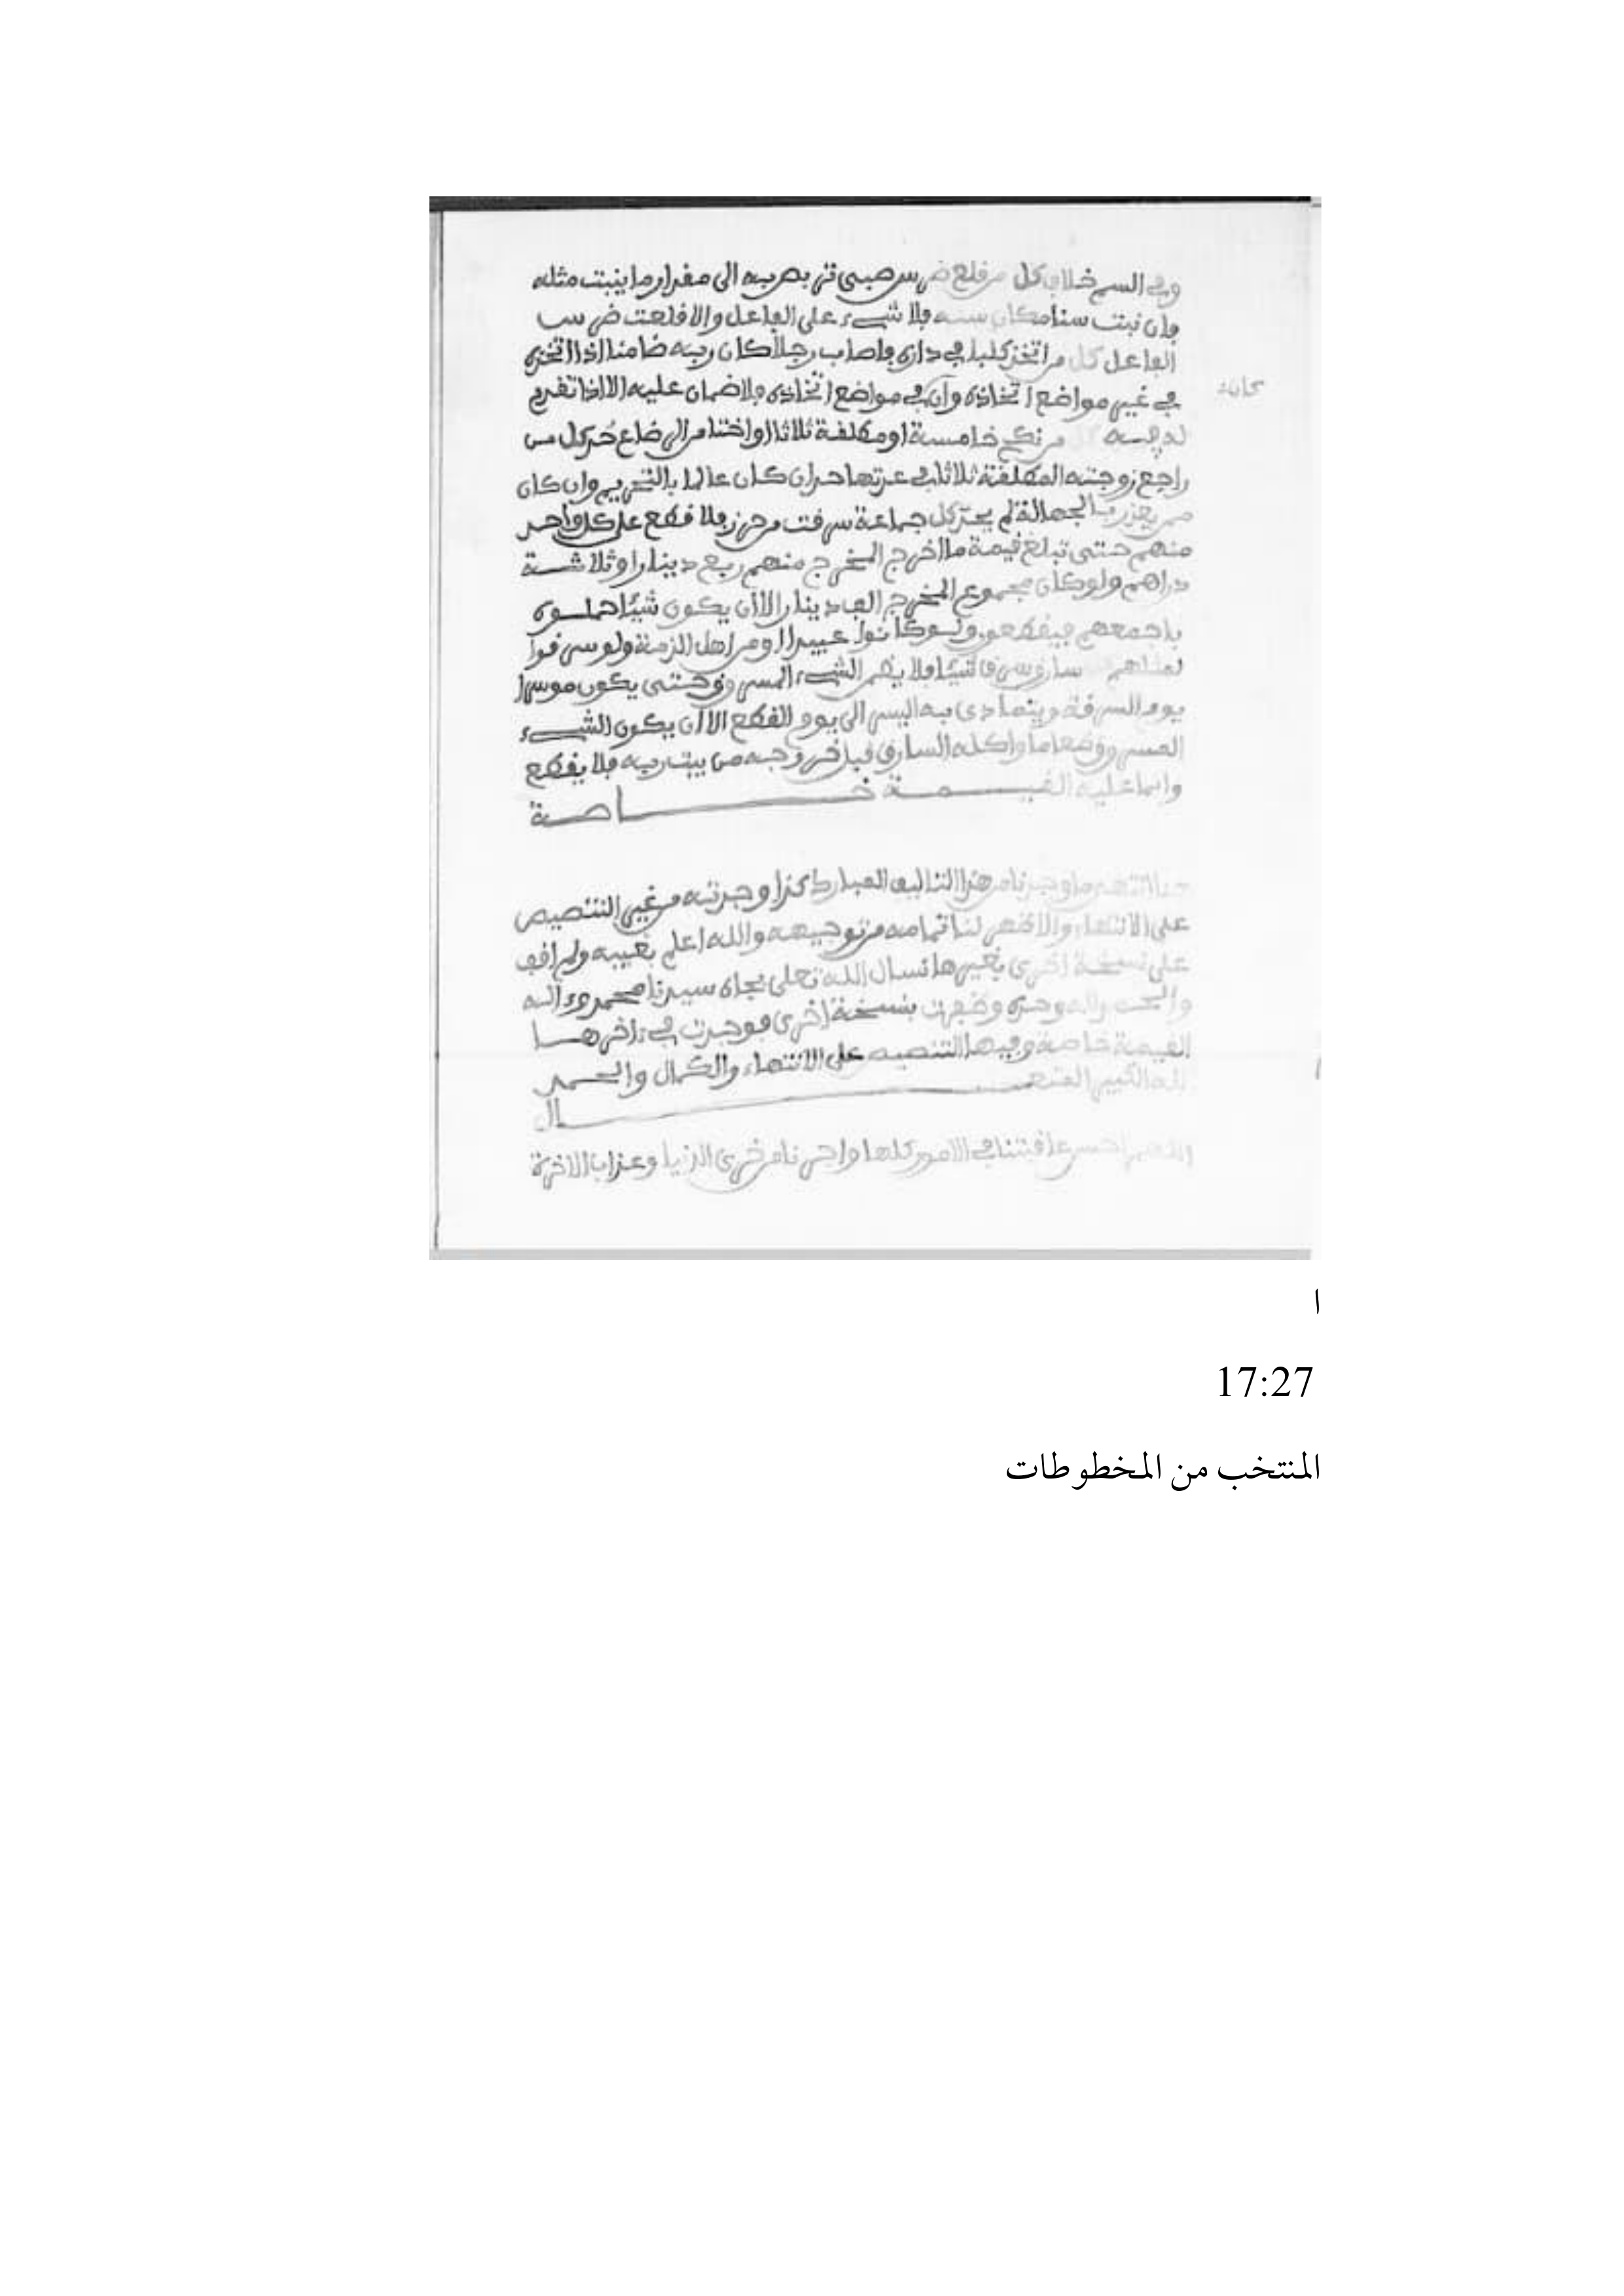 وفي السم خلاف كل من قلع ضرس صبي تربص به الى مقدار ما ينبت مثله
فان نبت سنا مكان سنه فلا شيء على الفاعل والا قلعت ضرس
الفاعل كل من اتخذ كلبا في داره فاصاب رجلا كان ربه ضامنا اذا اتخذه
في غير مواضع اتخاذه وان في مواضع اتخاذه فلا ضمان عليه الا اذا تقدم
كانه
من نكح خامسة او مطلقة ثلاثا او اختا من الرضاع حد كل من
راجع زوجته المطلقة ثلاثا في عدتها حد ان كان عالما بالتحريم وان كان
من يعذر بالجهالة لم يحد كل جماعة سرقت من حرز فلا قطع على كل واحد
منهم حتى تبلغ قيمة ما اخرج المخرج منهم ربع دينار او ثلاثة
دراهم ولو كان مجموع المخرج الف دينار الا ان يكون شيئا حملوه
باجمعهم فيقطعون ولو كانوا عبيدا او من اهل الذمة ولو سرقوا
سارق سرق شيئا فلا يضمن الشيء المسروق حتى يكون موسرا
يوم السرقة ويتمادى به اليسر الى يوم القطع الا ان يكون الشيء
المسروق طعاما واكله السارق قبل خروجه من بيت ربه فلا يقطع
وانما عليه القيمة خاصة
هنا انتهى ما وجدنا من هذا التاليف المبارك كذا وجدته من غير التنصيص
على الانتهاء والاظهر لنا تمامه من توجيهه والله اعلم بغيبه ولم اقف
على نسخة اخرى بغيرها نسال الله تعلى بجاه سيدنا محمد وءاله
والحمد لله وحده وظفرت بنسخة اخرى فوجدت في ءاخرها
القيمة خاصة وفيها التنصيص على الانتهاء والكمال والحمد
لله الكبير المتعال
اللهم احسن عاقبتنا في الامور كلها واجرنا من خزي الدنيا وعذاب الاخرة
ا
17:27
المنتخب من المخطوطات